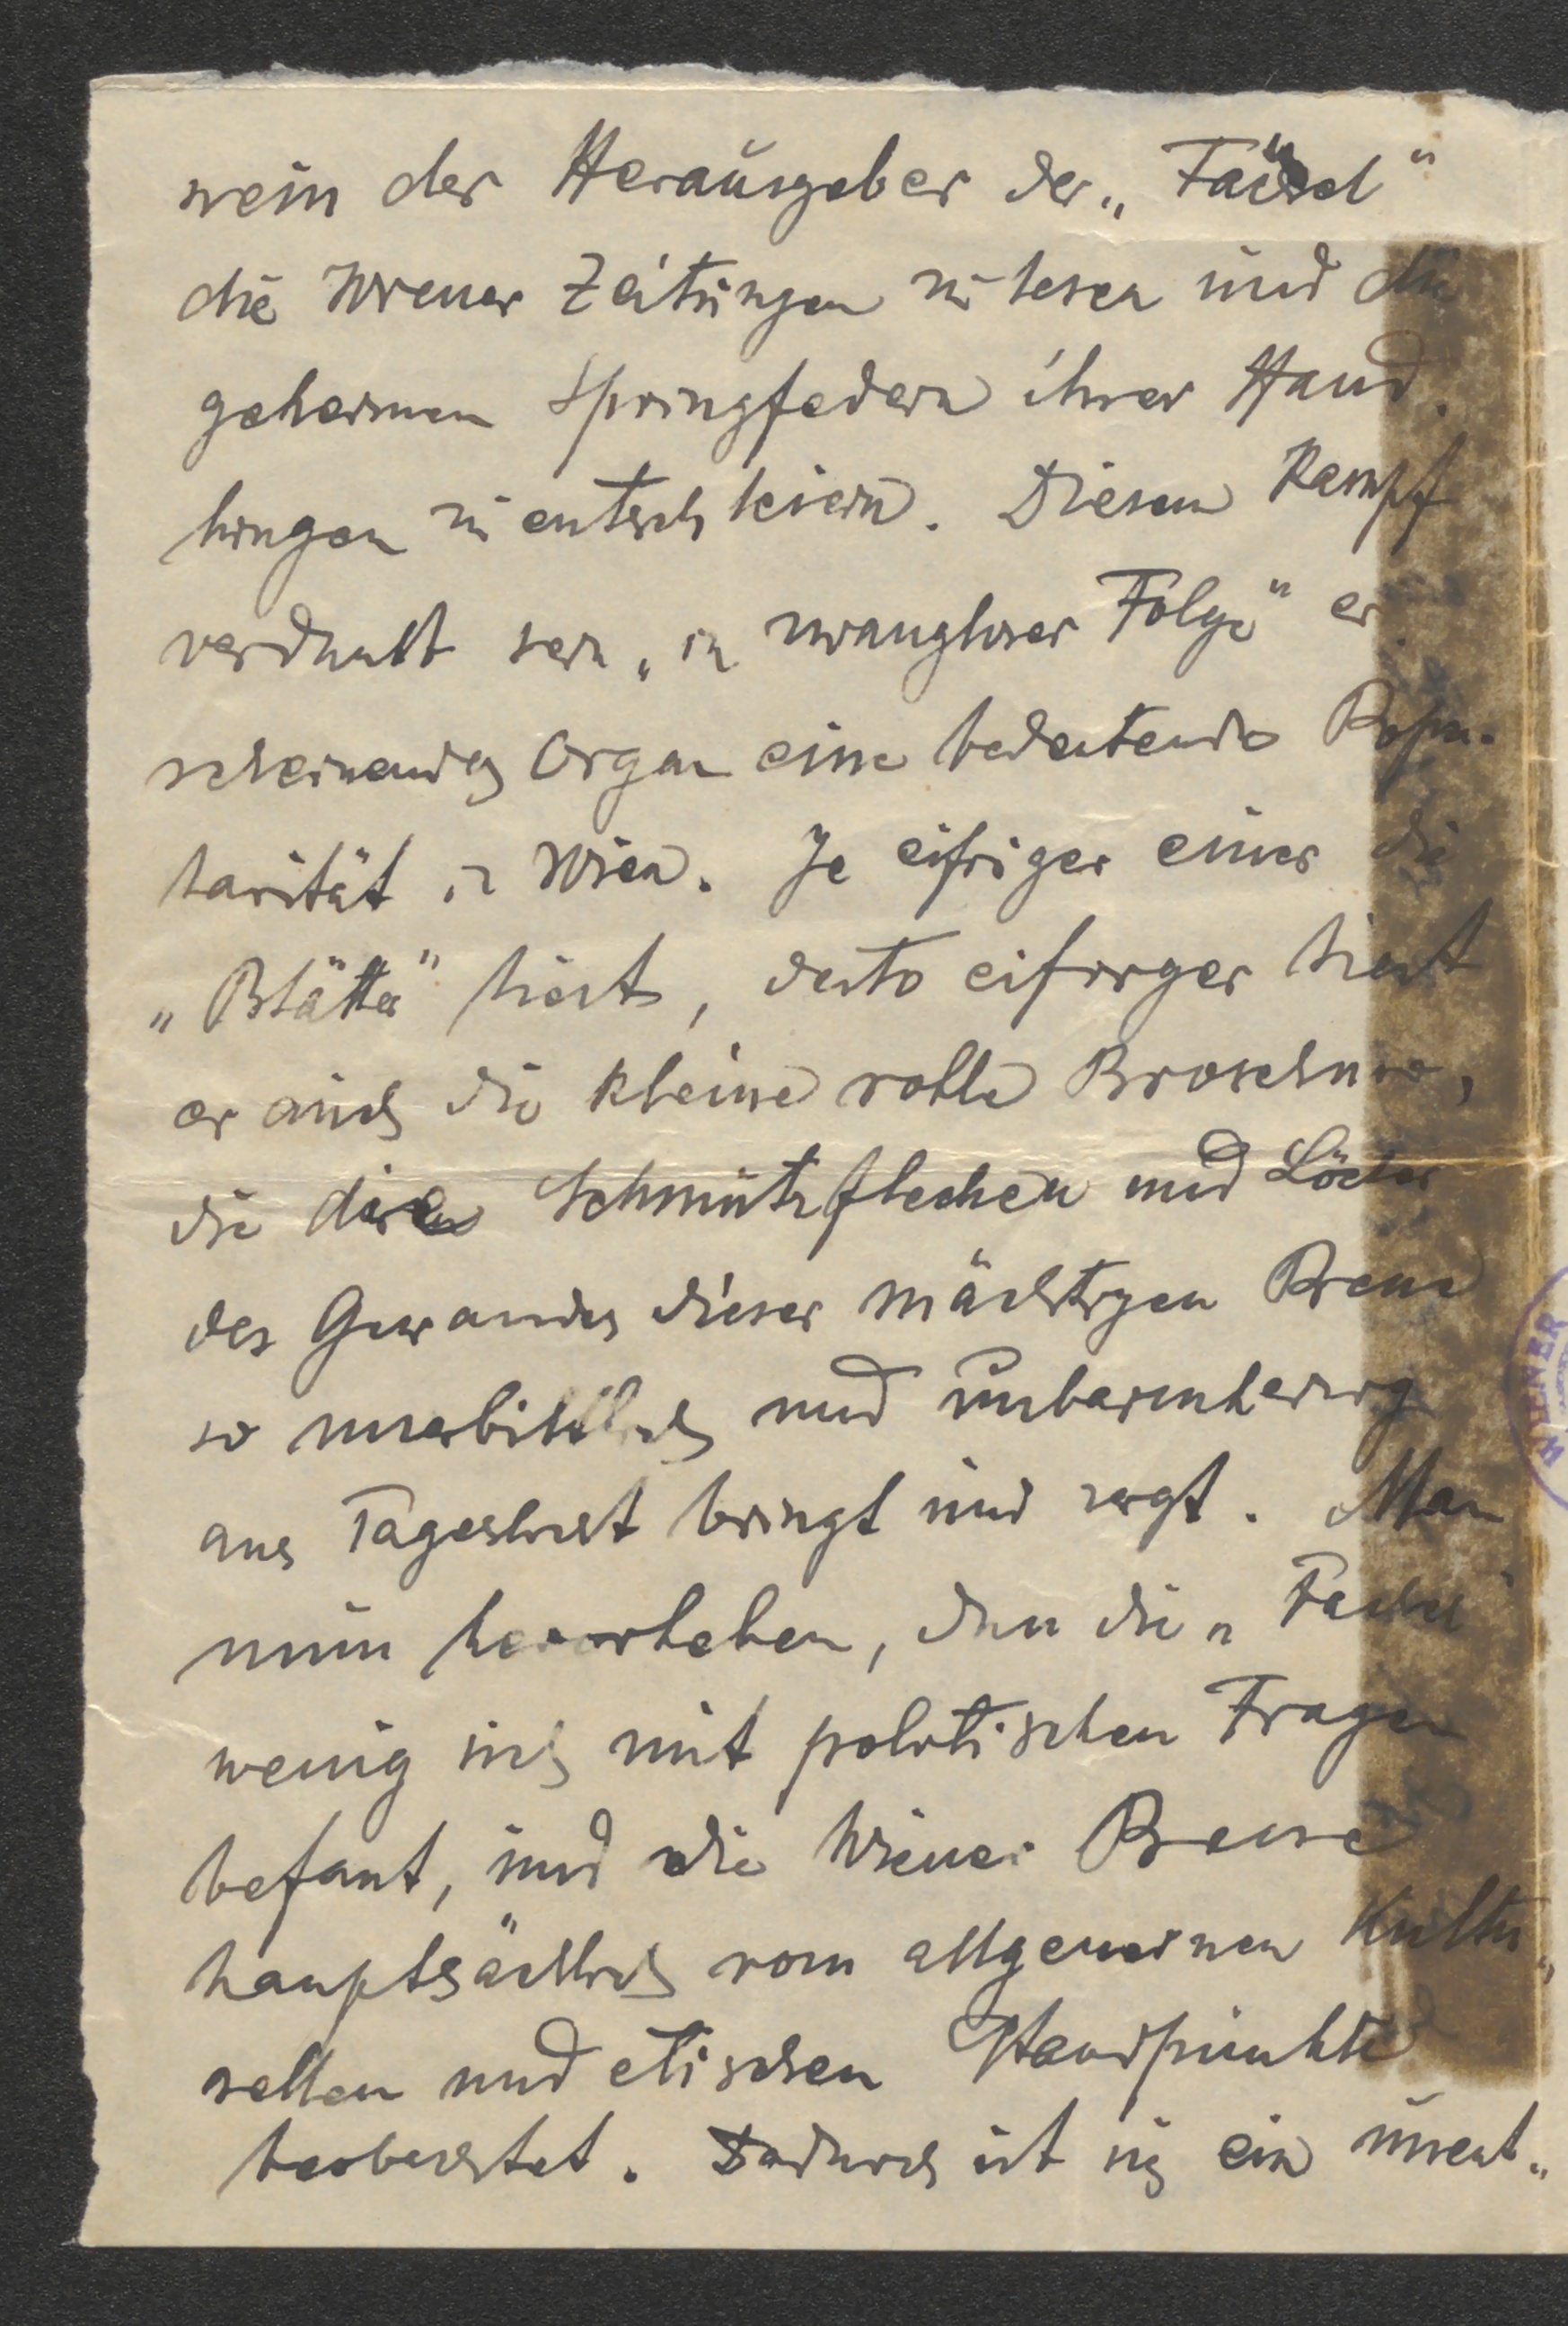 wein der Herausgeber der „Fackel"
die Wiener Zeitungen zu lesen und die
geheimen Springfedern ihrer Hand„
lungen zu entschleiern. Diesem Kampf
verdankt sein „in zwangloser Folge" er„
scheinendes Organ eine bedeutende Popu„
larität in Wien. Je eifriger einer die
„Blätter" liest, desto eifriger liest
er auch die kleine rothe Broschure,
die die Schmutzflecken und Löcher
des Gewandes dieser mächtigen Presse
so unerbittlich und unbarmherzig
ans Tageslicht bringt und zeigt. Man
muss hervorheben, dass die „Fackel"
wenig sich mit politischen Fragen
befasst, und die Wiener Presse
hauptsächlich vom allgemeinen kultu„
rellen und etischen Standpunkte
beobachtet. Dadurch ist sie ein unent„
WIENER